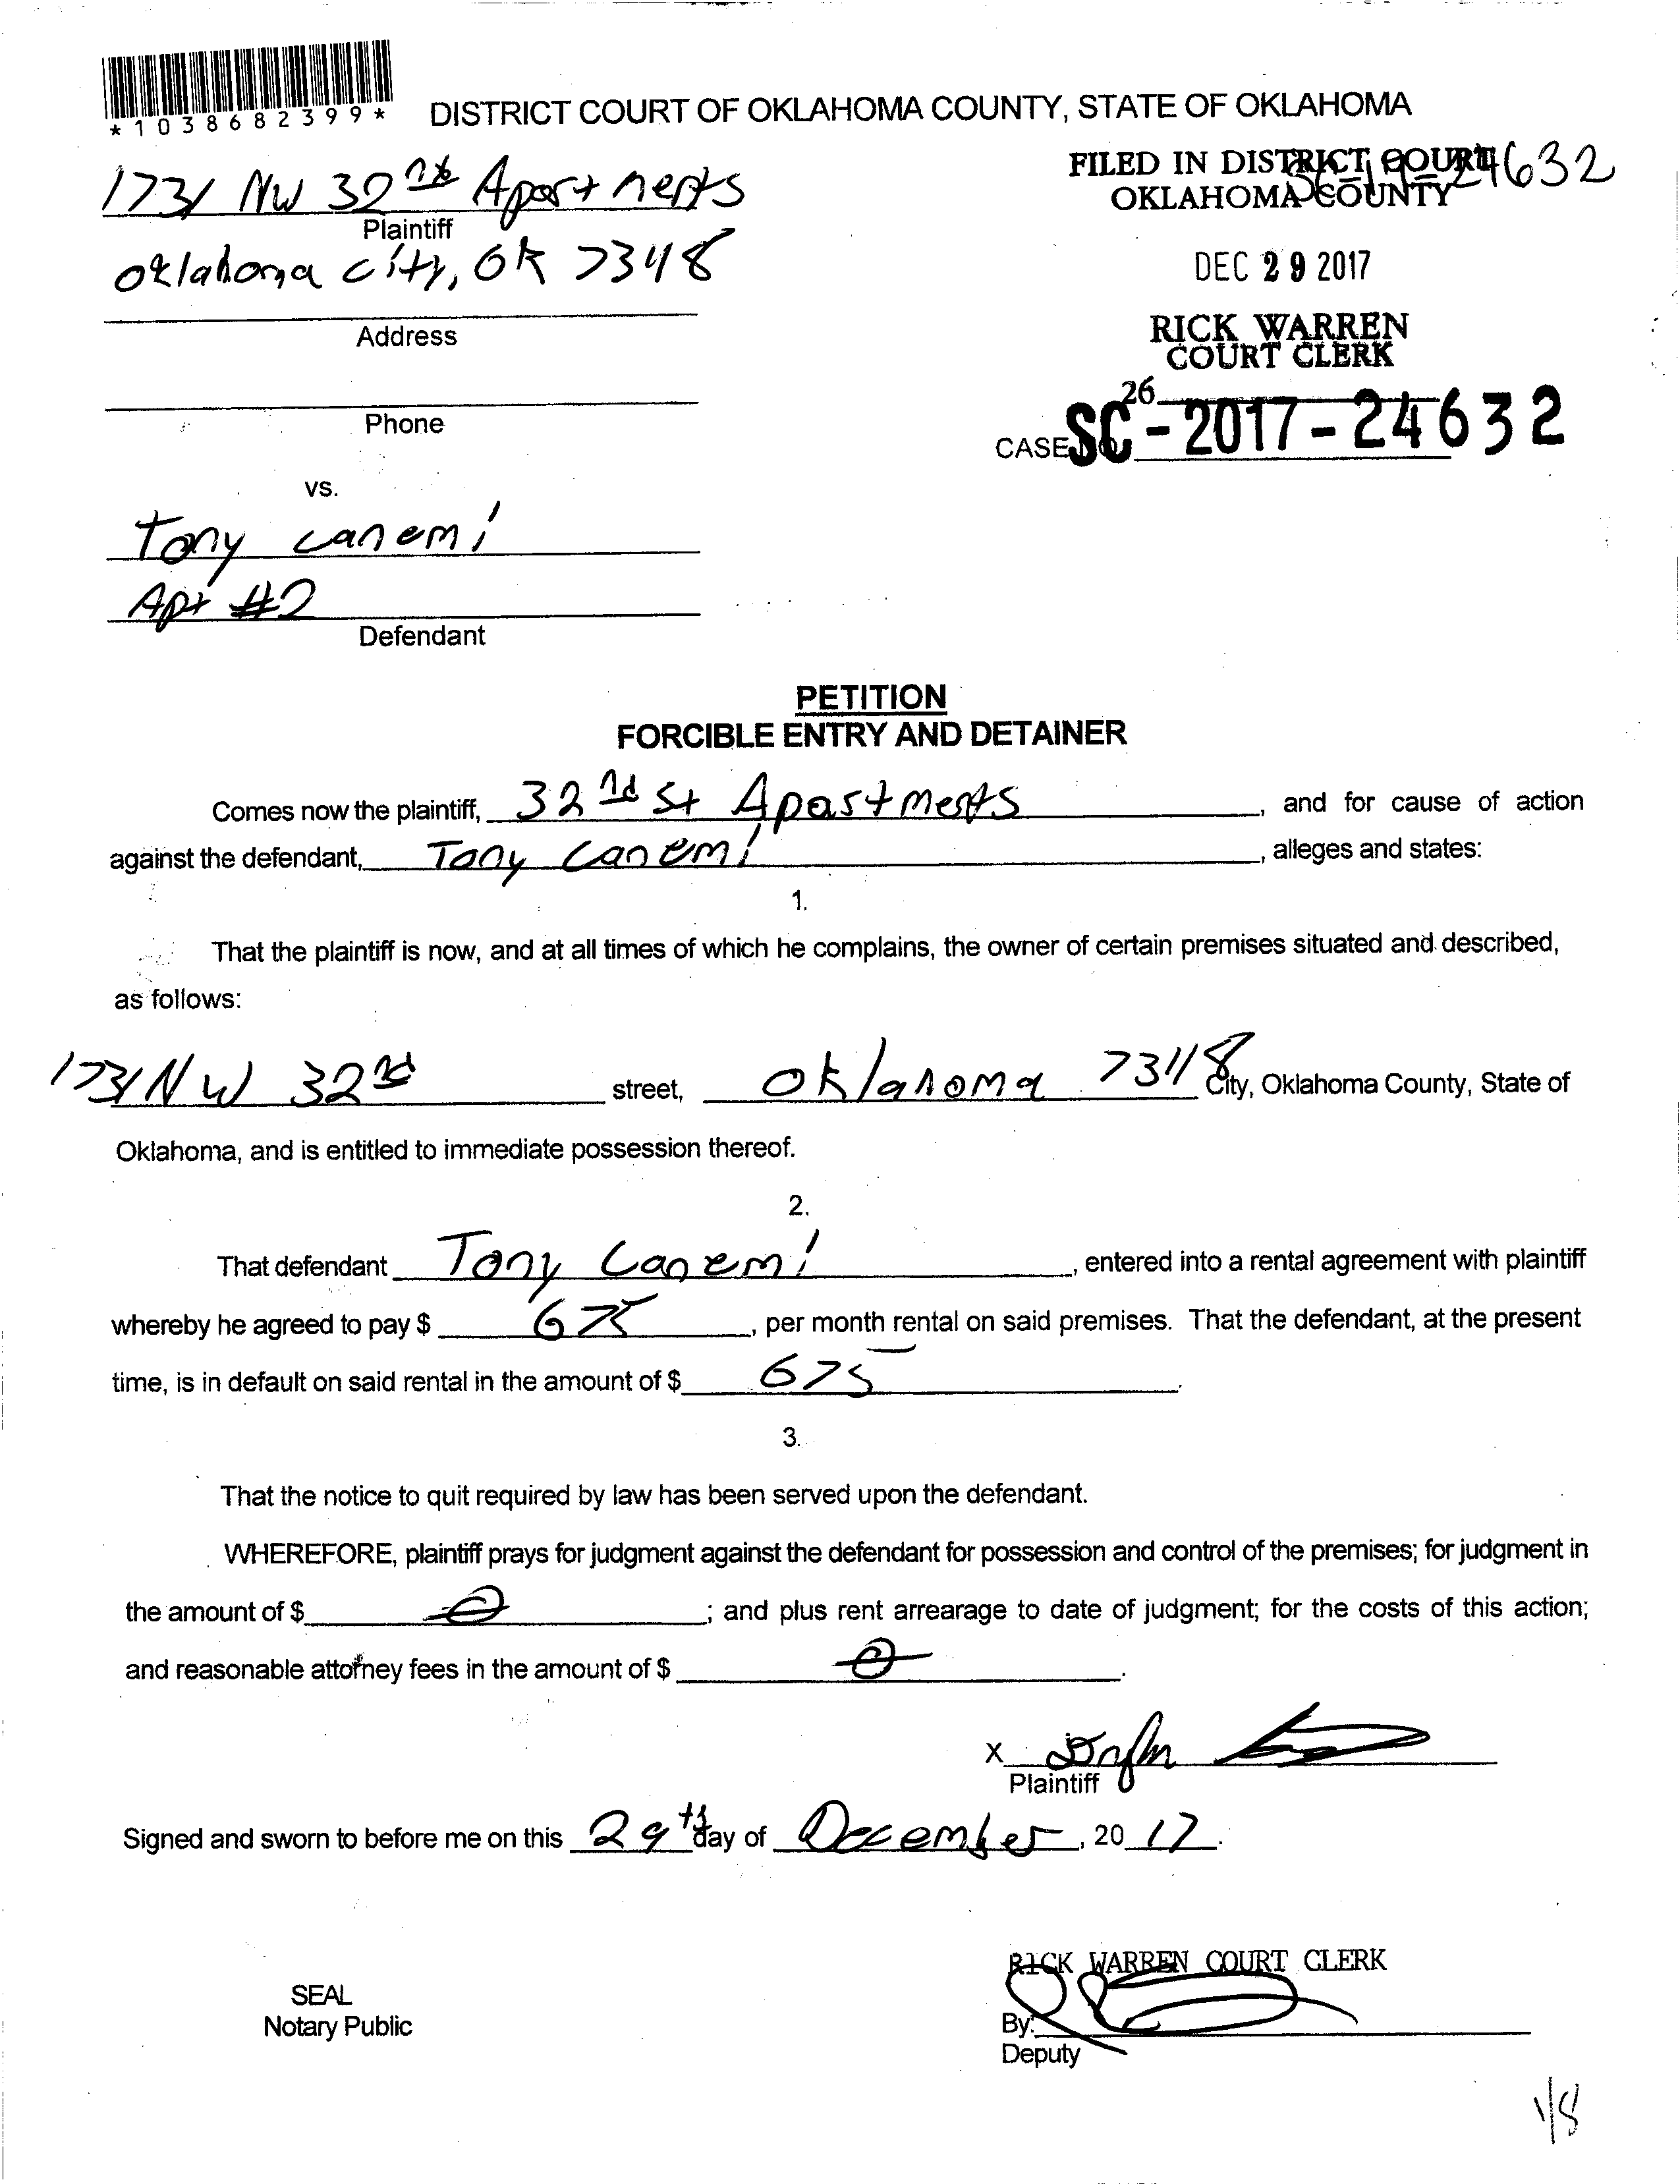 *1038682399*
DISTRICT COURT OF OKLAHOMA COUNTY, STATE OF OKLAHOMA
1731 NW 32nd Apartments
Plaintiff
FILED IN DISTRICT COURT
OKLAHOMA COUNTY
24632
Oklahoma City, OK 7348
Address
DEC 29 2017
RICK WARREN
COURT CLERK
Phone
26
CASE NO. SC-2017-24632
vs.
Tony canemi
Apt #2
Defendant
PETITION
FORCIBLE ENTRY AND DETAINER
Comes now the plaintiff, 32nd St Apartments, and for cause of action
against the defendant, Tony Canemi, alleges and states:
1.
That the plaintiff is now, and at all times of which he complains, the owner of certain premises situated and described,
as follows:
1731 NW 32nd street, Oklahoma 73118 City, Oklahoma County, State of
Oklahoma, and is entitled to immediate possession thereof.
2.
That defendant Tony Canemi, entered into a rental agreement with plaintiff
whereby he agreed to pay $ 675, per month rental on said premises. That the defendant, at the present
time, is in default on said rental in the amount of $ 675.
3.
That the notice to quit required by law has been served upon the defendant.
WHEREFORE, plaintiff prays for judgment against the defendant for possession and control of the premises; for judgment in
the amount of $ 0; and plus rent arrearage to date of judgment; for the costs of this action;
and reasonable attorney fees in the amount of $ 0.
X
Plaintiff
Signed and sworn to before me on this 29th day of December, 20 17.
RICK WARREN COURT CLERK
SEAL
Notary Public
By:
Deputy
1/8